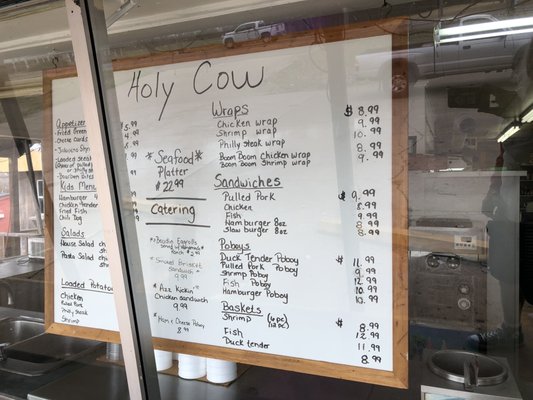 Holy Cow
Appetizer
Fried Green
Cheese Curds
Loaded Steak
Bourbon Bites
Kids Menu
Hamburger
Chicken tender
Fried Fish
Chili Dog
Salads
House Salad
Pasta Salad
Loaded Potato
Chicken
Pulled Pork
Philly Steak
Shrimp
*Seafood*
Platter
$22.99
Catering
* Boudin Eggrolls
w/ Ranch 8.99
9.99
Chicken Sandwich
8.99
* Ham & Cheese Poboy
8.99
Wraps
Chicken Wrap $8.99
Shrimp Wrap 9.99
Philly Steak Wrap 10.99
Boom Boom Chicken Wrap 8.99
Boom Boom Shrimp Wrap 9.99
Sandwiches
Pulled Pork $9.99
Chicken 8.99
Fish 9.99
Hamburger 8oz 8.99
Slaw burger 8oz 8.99
Poboys
Duck Tender Poboy $11.99
Pulled Pork Poboy 9.99
Shrimp Poboy 12.99
Fish Poboy 10.99
Hamburger Poboy 10.99
Baskets
Shrimp (6pc) $8.99
(12pc) 12.99
Fish 11.99
Duck tender 8.99